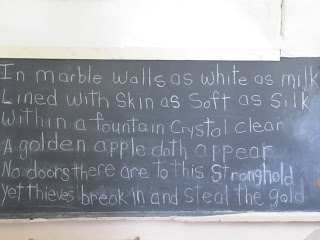 In marble walls as white as milk
Lined with skin as soft as silk
Within a fountain crystal clear
A golden apple doth appear
No doors there are to this stronghold
Yet thieves break in and steal the gold